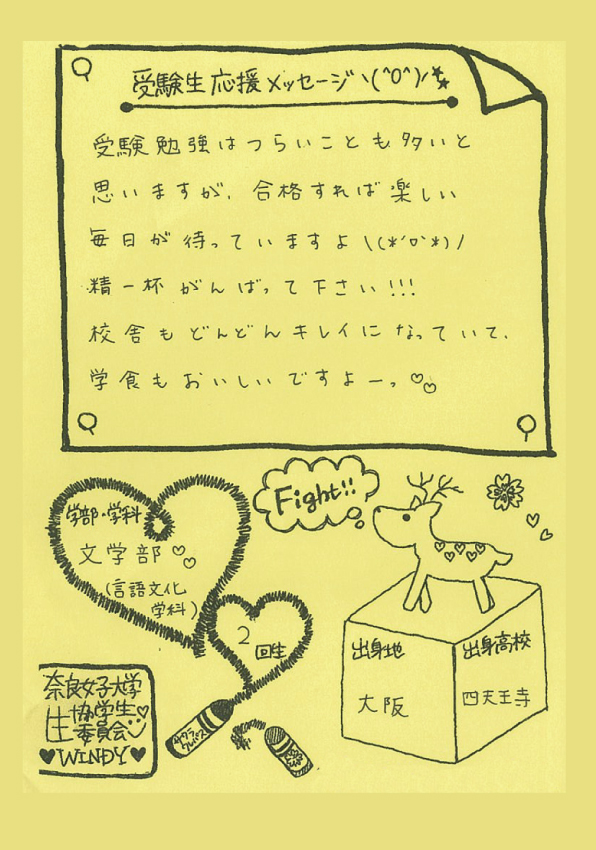 受験生応援メッセージヽ(^O^)ノ
受験勉強はつらいことも多いと
思いますが、合格すれば楽しい
毎日が待っていますよ\(*'o'*)/
精一杯がんばって下さい!!!
校舎もどんどんキレイになっていて、
学食もおいしいですよーっ♡♡
Fight!!
学部・学科
文学部♡♡
(言語文化
学科)
2
回生
出身地
大阪
出身高校
四天王寺
奈良女子大学
生協学生♡
委員会
♥WINDY♥
サクラ
クレパス